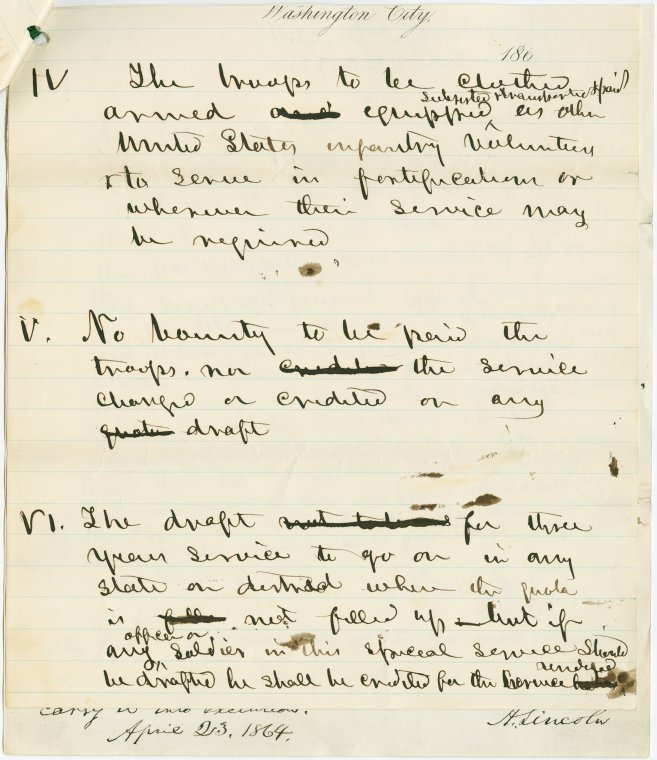 Washington City,
186
IV The troops to be clothed
subsisted & transported & paid
armed and equipped as other
United States infantry Volunteers
& to serve in fortifications or
wherever their service may
be required
V. No bounty to be paid the
troops. nor credited the service
charged or credited on any
quota draft
VI. The draft for three
years service to go on in any
State or district where the quota
is not filled up – but if
officer or
any soldier in this special service should
rendered
be drafted he shall be credited for the service
carry it into execution.
April 23, 1864. A. Lincoln